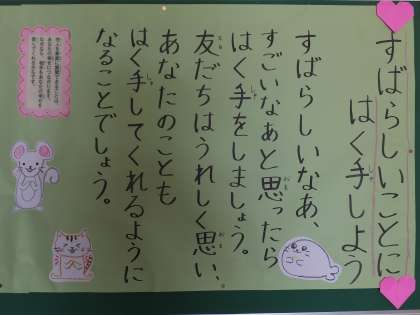 すばらしいことに
はく手しよう
すばらしいなあ、
すごいなあと思ったら
はく手をしましょう。
友だちはうれしく思い、
あなたのことも
はく手してくれるように
なることでしょう。